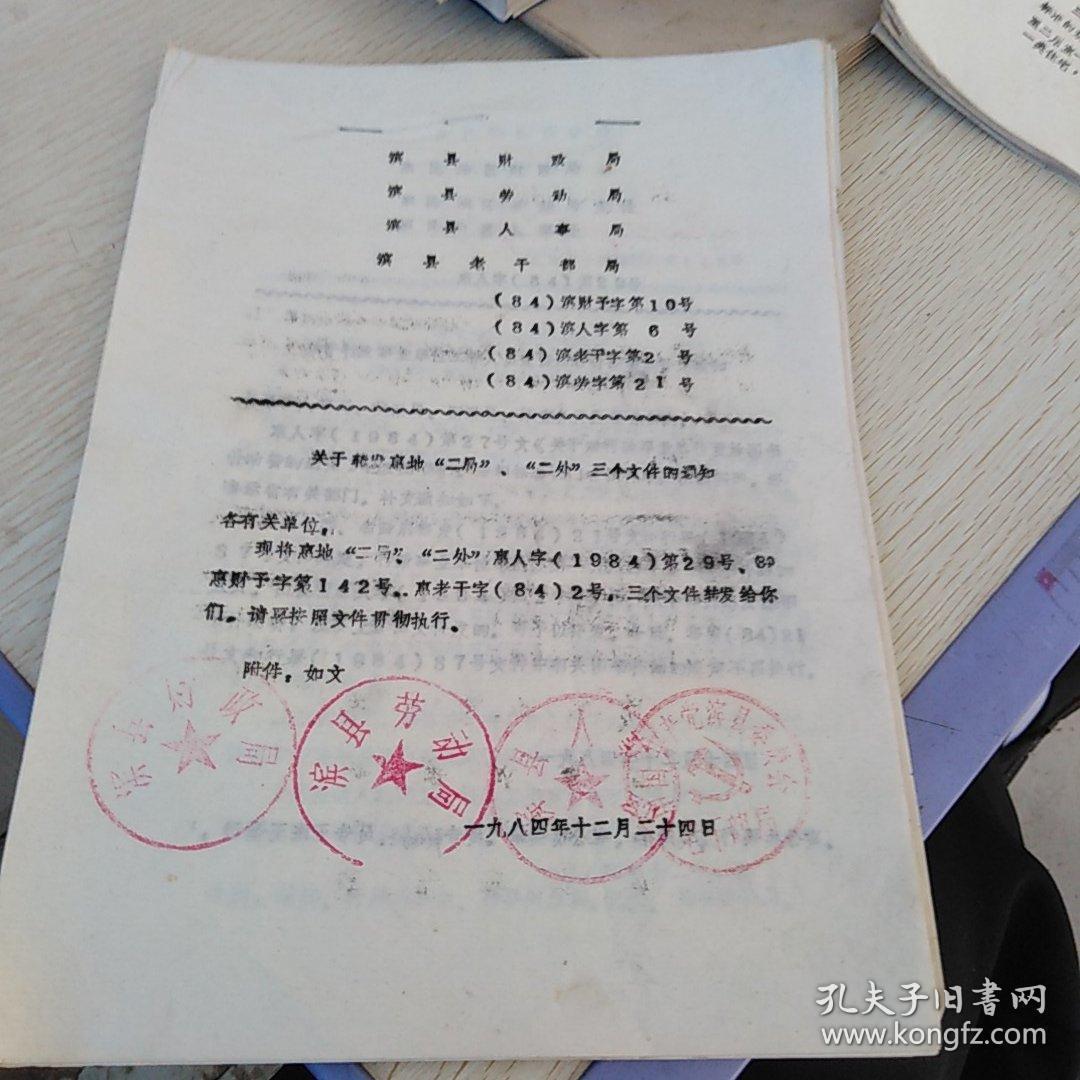 滨县财政局
滨县劳动局
滨县人事局
滨县老干部局
(84)滨财予字第10号
(84)滨人字第 6 号
(84)滨老干字第2 号
(84)滨劳字第21 号
关于转发惠地“二局”、“二外”三个文件的通知
各有关单位,
现将惠地“二局”、“二外”惠人字(1984)第29号、
惠财予字第142号、惠老干字(84)2号。三个文件转发给你
们。请严按照文件贯彻执行。
附件。如文
滨县财政局
滨县劳动局
滨县人事局
一九八四年十二月二十四日
一类住宅,
孔夫子旧书网
www.kongfz.com